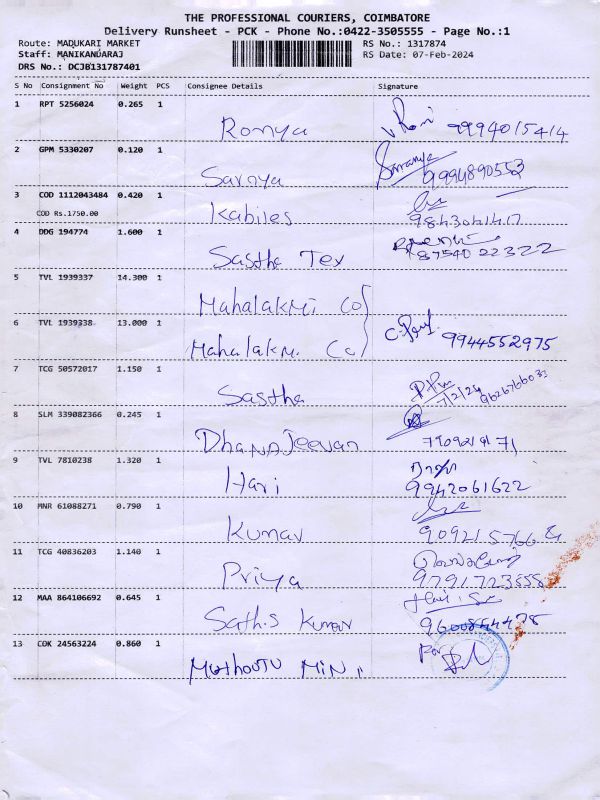 THE PROFESSIONAL COURIERS, COIMBATORE
Delivery Runsheet - PCK - Phone No.:0422-3505555 - Page No.:1
Route: MADUKARI MARKET RS No.: 1317874
Staff: MANIKANDARAJ RS Date: 07-Feb-2024
DRS No.: DCJB131787401
S No Consignment No Weight PCS Consignee Details Signature
1 RPT 5256024 0.265 1 Ramya 9994015414
2 GPM 5330207 0.120 1 Sarnya Sarranya 9994890553
3 COD 1112043484 0.420 1 Kabiles
COD Rs.1750.00 9843041417
4 DDG 194774 1.600 1 Sastha Tex 87540 22322
5 TVL 1939337 14.300 1 Mahalakmi Co
6 TVL 1939338 13.000 1 Mahalakmi Co 9944552975
7 TCG 50572017 1.150 1 Sastha 7/2/24
8 SLM 339082366 0.245 1 Dhana Jeevan
9 TVL 7810238 1.320 1 Hari 9942061622
10 MNR 61088271 0.790 1 Kumar
11 TCG 40836203 1.140 1 Priya
12 MAA 864106692 0.645 1 Sathis Kumar
13 COK 24563224 0.860 1 Muthootu Mini For